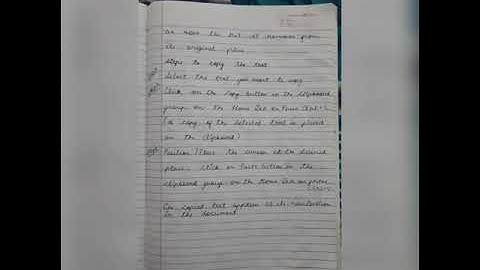 we move the text it removes from
its original place.
Steps to copy the text
Select the text you want to copy
Click on the Copy button in the Clipboard
group on the Home Tab or Press Ctrl+C
(A copy of the selected text is placed
on the Clipboard)
Position / Place the cursor at the desired
place. Click on Paste button in the
clipboard group on the Home Tab or press
Ctrl+V.
The copied text appears at its new location
in the document